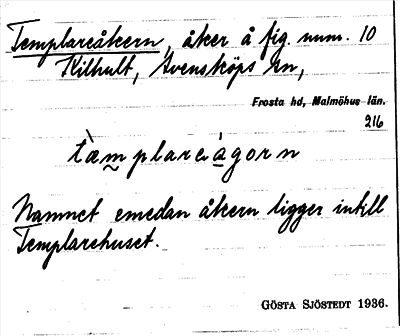 Templareåkern, åker å fig. num. 10
Kilhult, Svensköps sn,
Frosta hd, Malmöhus län.
216
tæmplareågorn
Namnet emedan åkern ligger intill
Templarehuset.
GÖSTA SJÖSTEDT 1936.